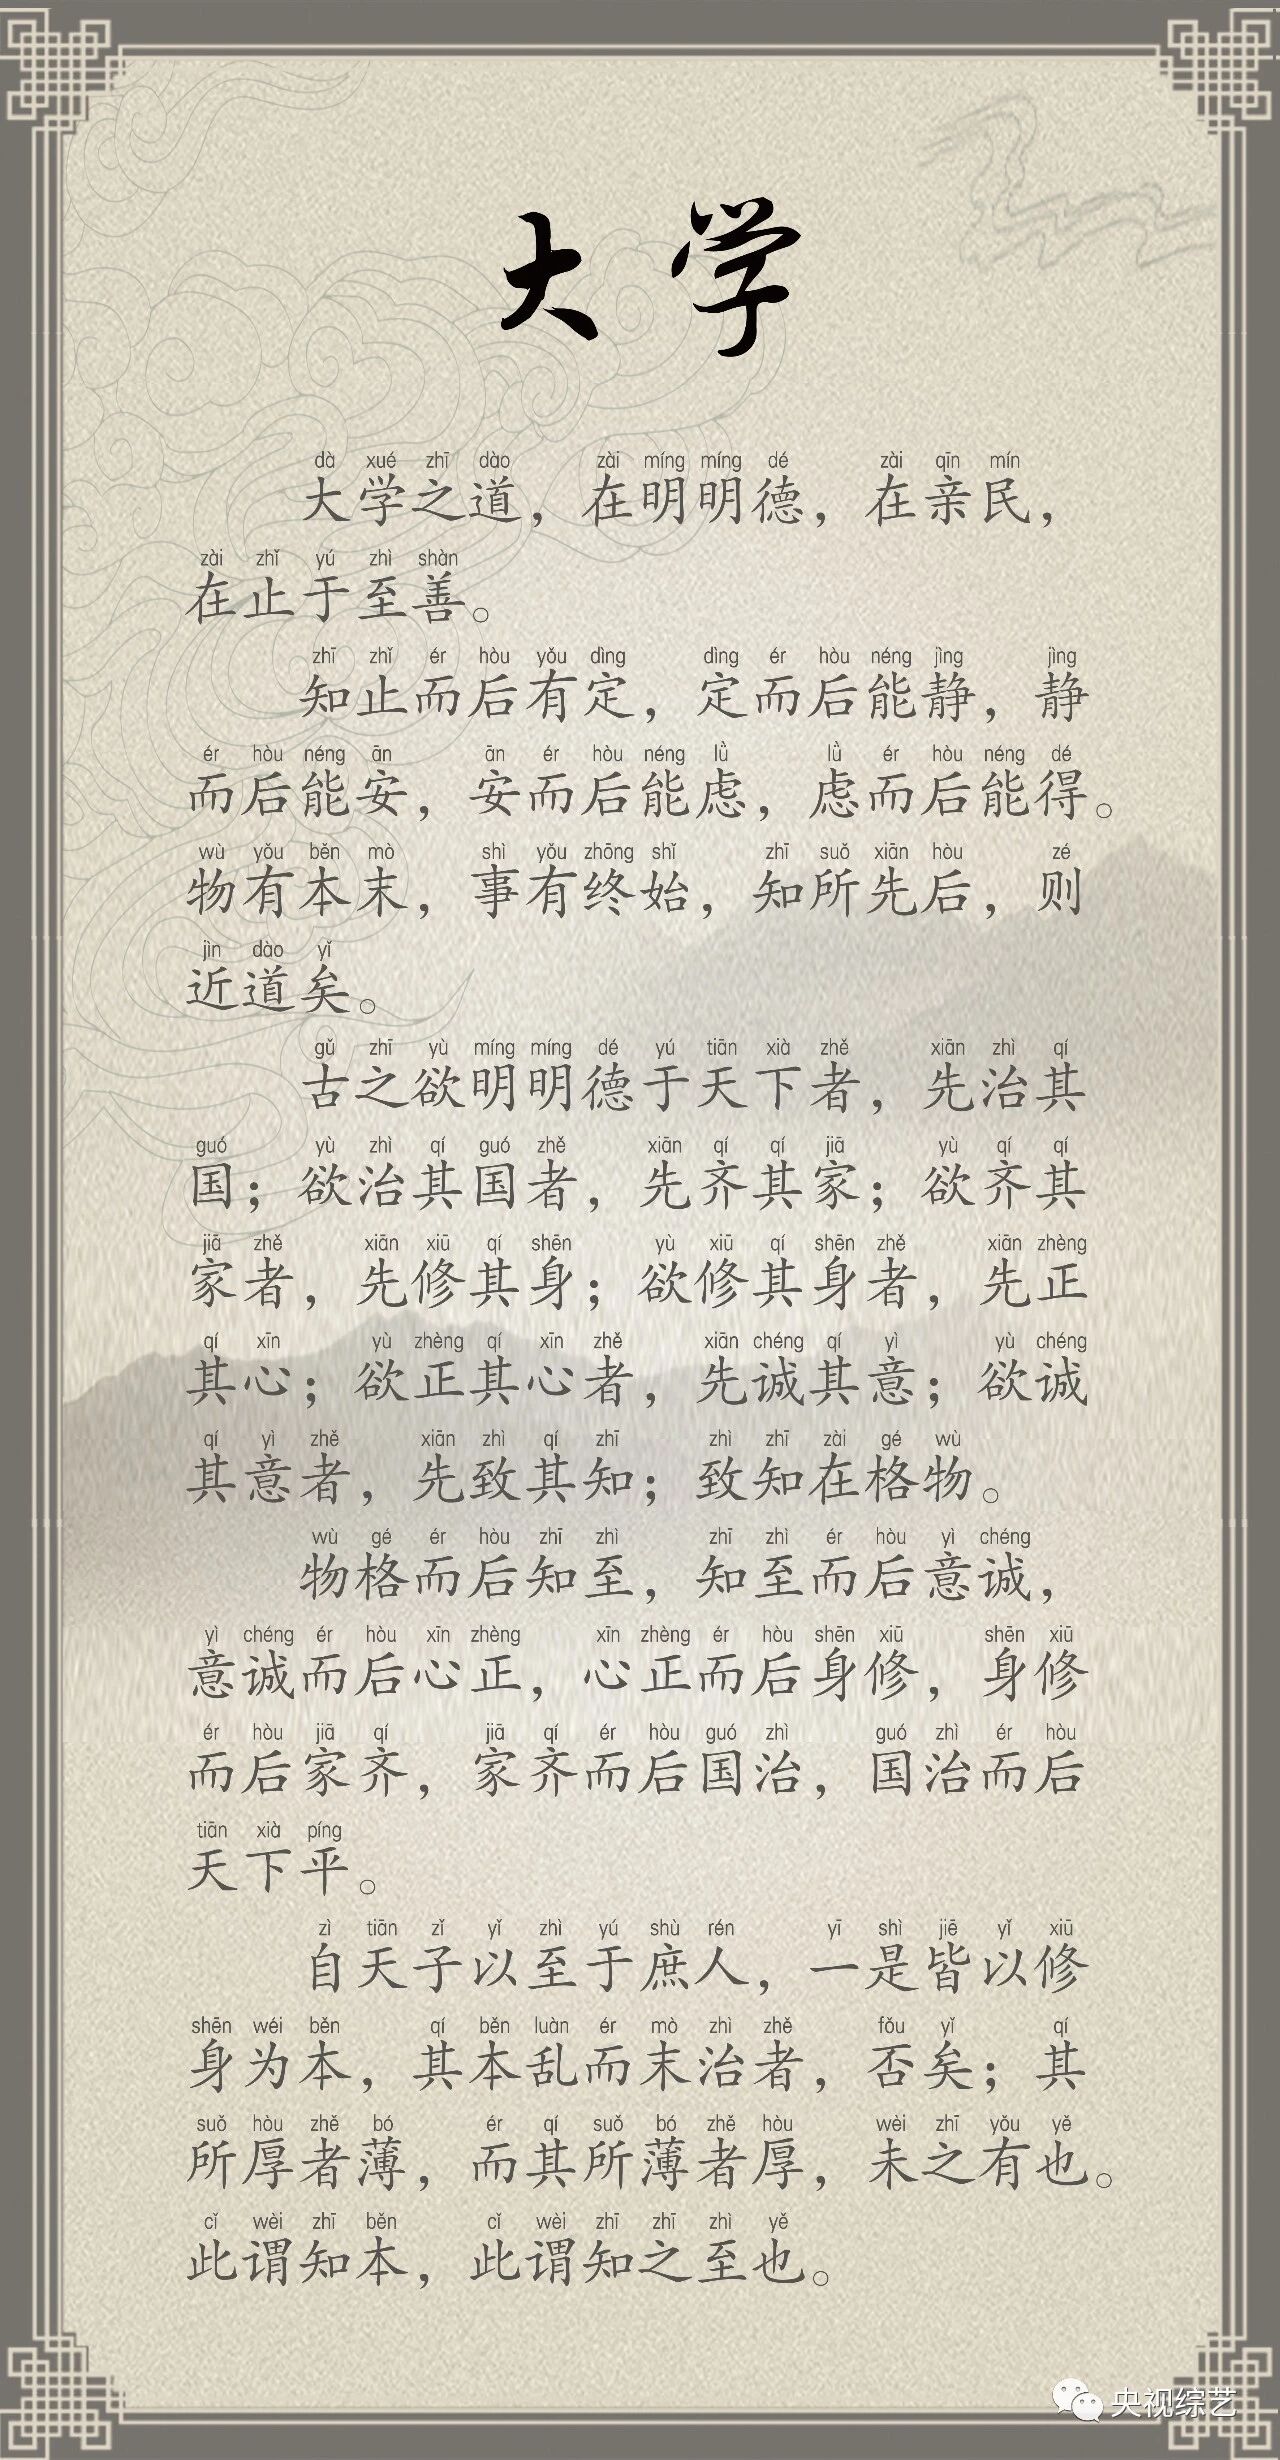 大学
dà xué zhī dào zài míng míng dé zài qīn mín
大学之道，在明明德，在亲民，
zài zhǐ yú zhì shàn
在止于至善。
zhī zhǐ ér hòu yǒu dìng dìng ér hòu néng jìng jìng
知止而后有定，定而后能静，静
ér hòu néng ān ān ér hòu néng lǜ lǜ ér hòu néng dé
而后能安，安而后能虑，虑而后能得。
wù yǒu běn mò shì yǒu zhōng shǐ zhī suǒ xiān hòu zé
物有本末，事有终始，知所先后，则
jìn dào yǐ
近道矣。
gǔ zhī yù míng míng dé yú tiān xià zhě xiān zhì qí
古之欲明明德于天下者，先治其
guó yù zhì qí guó zhě xiān qí qí jiā yù qí qí
国；欲治其国者，先齐其家；欲齐其
jiā zhě xiān xiū qí shēn yù xiū qí shēn zhě xiān zhèng
家者，先修其身；欲修其身者，先正
qí xīn yù zhèng qí xīn zhě xiān chéng qí yì yù chéng
其心；欲正其心者，先诚其意；欲诚
qí yì zhě xiān zhì qí zhī zhì zhī zài gé wù
其意者，先致其知；致知在格物。
wù gé ér hòu zhī zhì zhī zhì ér hòu yì chéng
物格而后知至，知至而后意诚，
yì chéng ér hòu xīn zhèng xīn zhèng ér hòu shēn xiū shēn xiū
意诚而后心正，心正而后身修，身修
ér hòu jiā qí jiā qí ér hòu guó zhì guó zhì ér hòu
而后家齐，家齐而后国治，国治而后
tiān xià píng
天下平。
zì tiān zǐ yǐ zhì yú shù rén yī shì jiē yǐ xiū
自天子以至于庶人，一是皆以修
shēn wéi běn qí běn luàn ér mò zhì zhě fǒu yǐ qí
身为本，其本乱而末治者，否矣；其
suǒ hòu zhě bó ér qí suǒ bó zhě hòu wèi zhī yǒu yě
所厚者薄，而其所薄者厚，未之有也。
cǐ wèi zhī běn cǐ wèi zhī zhī zhì yě
此谓知本，此谓知之至也。
央视综艺